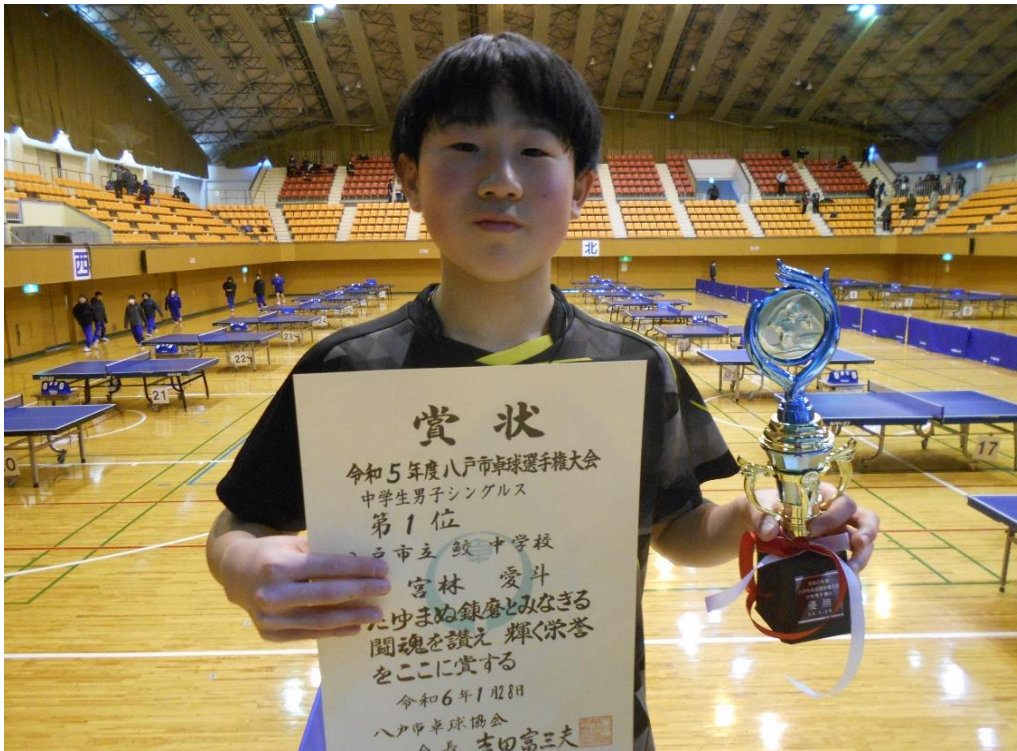 西
北
21
22
23
17
賞状
令和5年度八戸市卓球選手権大会
中学生男子シングルス
第1位
八戸市立 鮫 中学校
宮林 愛斗
たゆまぬ錬磨とみなぎる
闘魂を讃え 輝く栄誉
をここに賞する
令和6年1月28日
八戸市卓球協会
会長 吉田富三夫
優勝